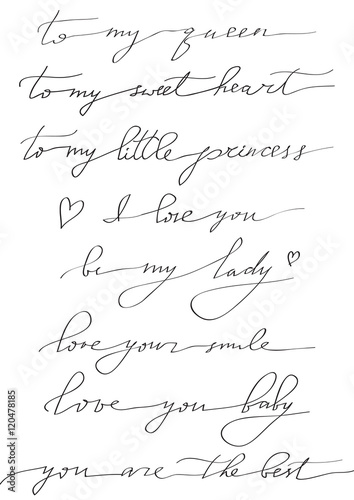 to my queen
to my sweet heart
to my little princess
I love you
be my lady
love your smile
love you baby
you are the best
Adobe Stock | #120478185